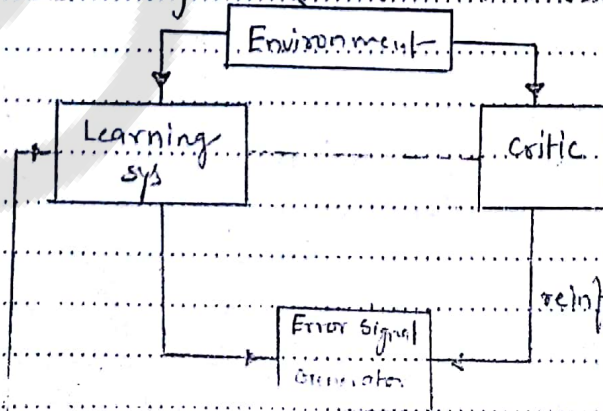 Environment
Learning
sys
Critic
rein
Error Signal
Generator